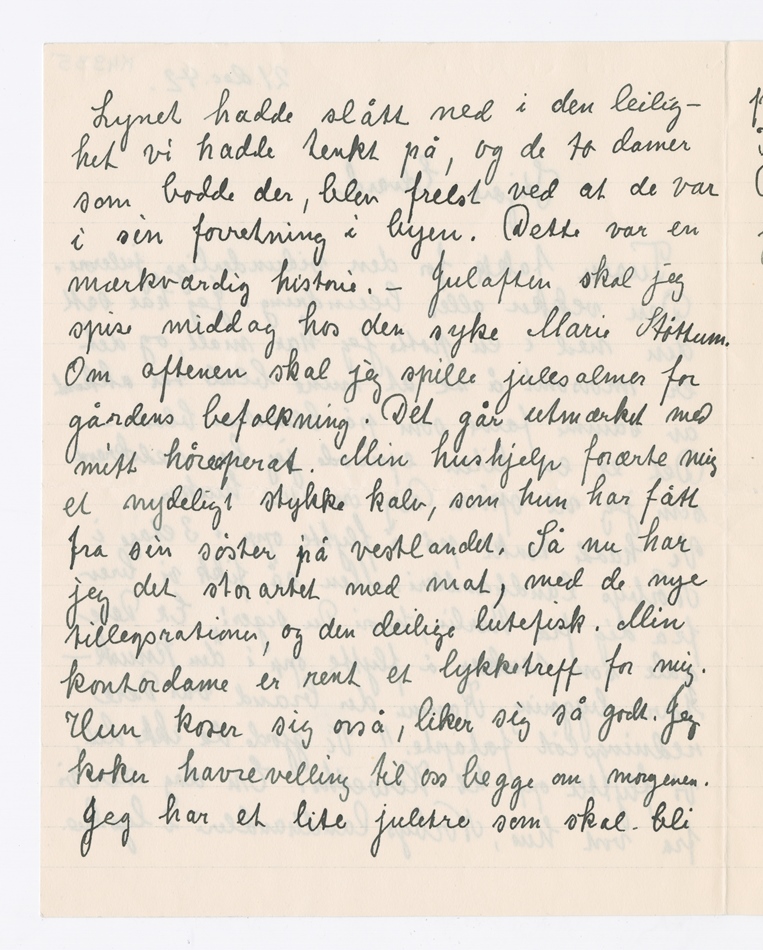 Lynet hadde slått ned i den leilig-
het vi hadde tenkt på, og de to damer
som bodde der, blev frelst ved at de var
i sin forretning i byen. Dette var en
mærkværdig historie. - Julaften skal jeg
spise middag hos den syke Marie Støttum.
Om aftenen skal jeg spille julesalmer for
gårdens befolkning. Det går utmærket med
mitt höreaperat. Min hushjelp forærte mig
et nydeligt stykke kalv, som hun har fått
fra sin söster på vestlandet. Så nu har
jeg det storartet med mat, med de nye
tillegsrationer, og den deilige lutefisk. Min
kontordame er rent et lykketreff for mig.
Hun koser sig også, liker sig så godt. Jeg
koker havrevelling til oss begge om morgenen.
Jeg har et lite juletre som skal bli